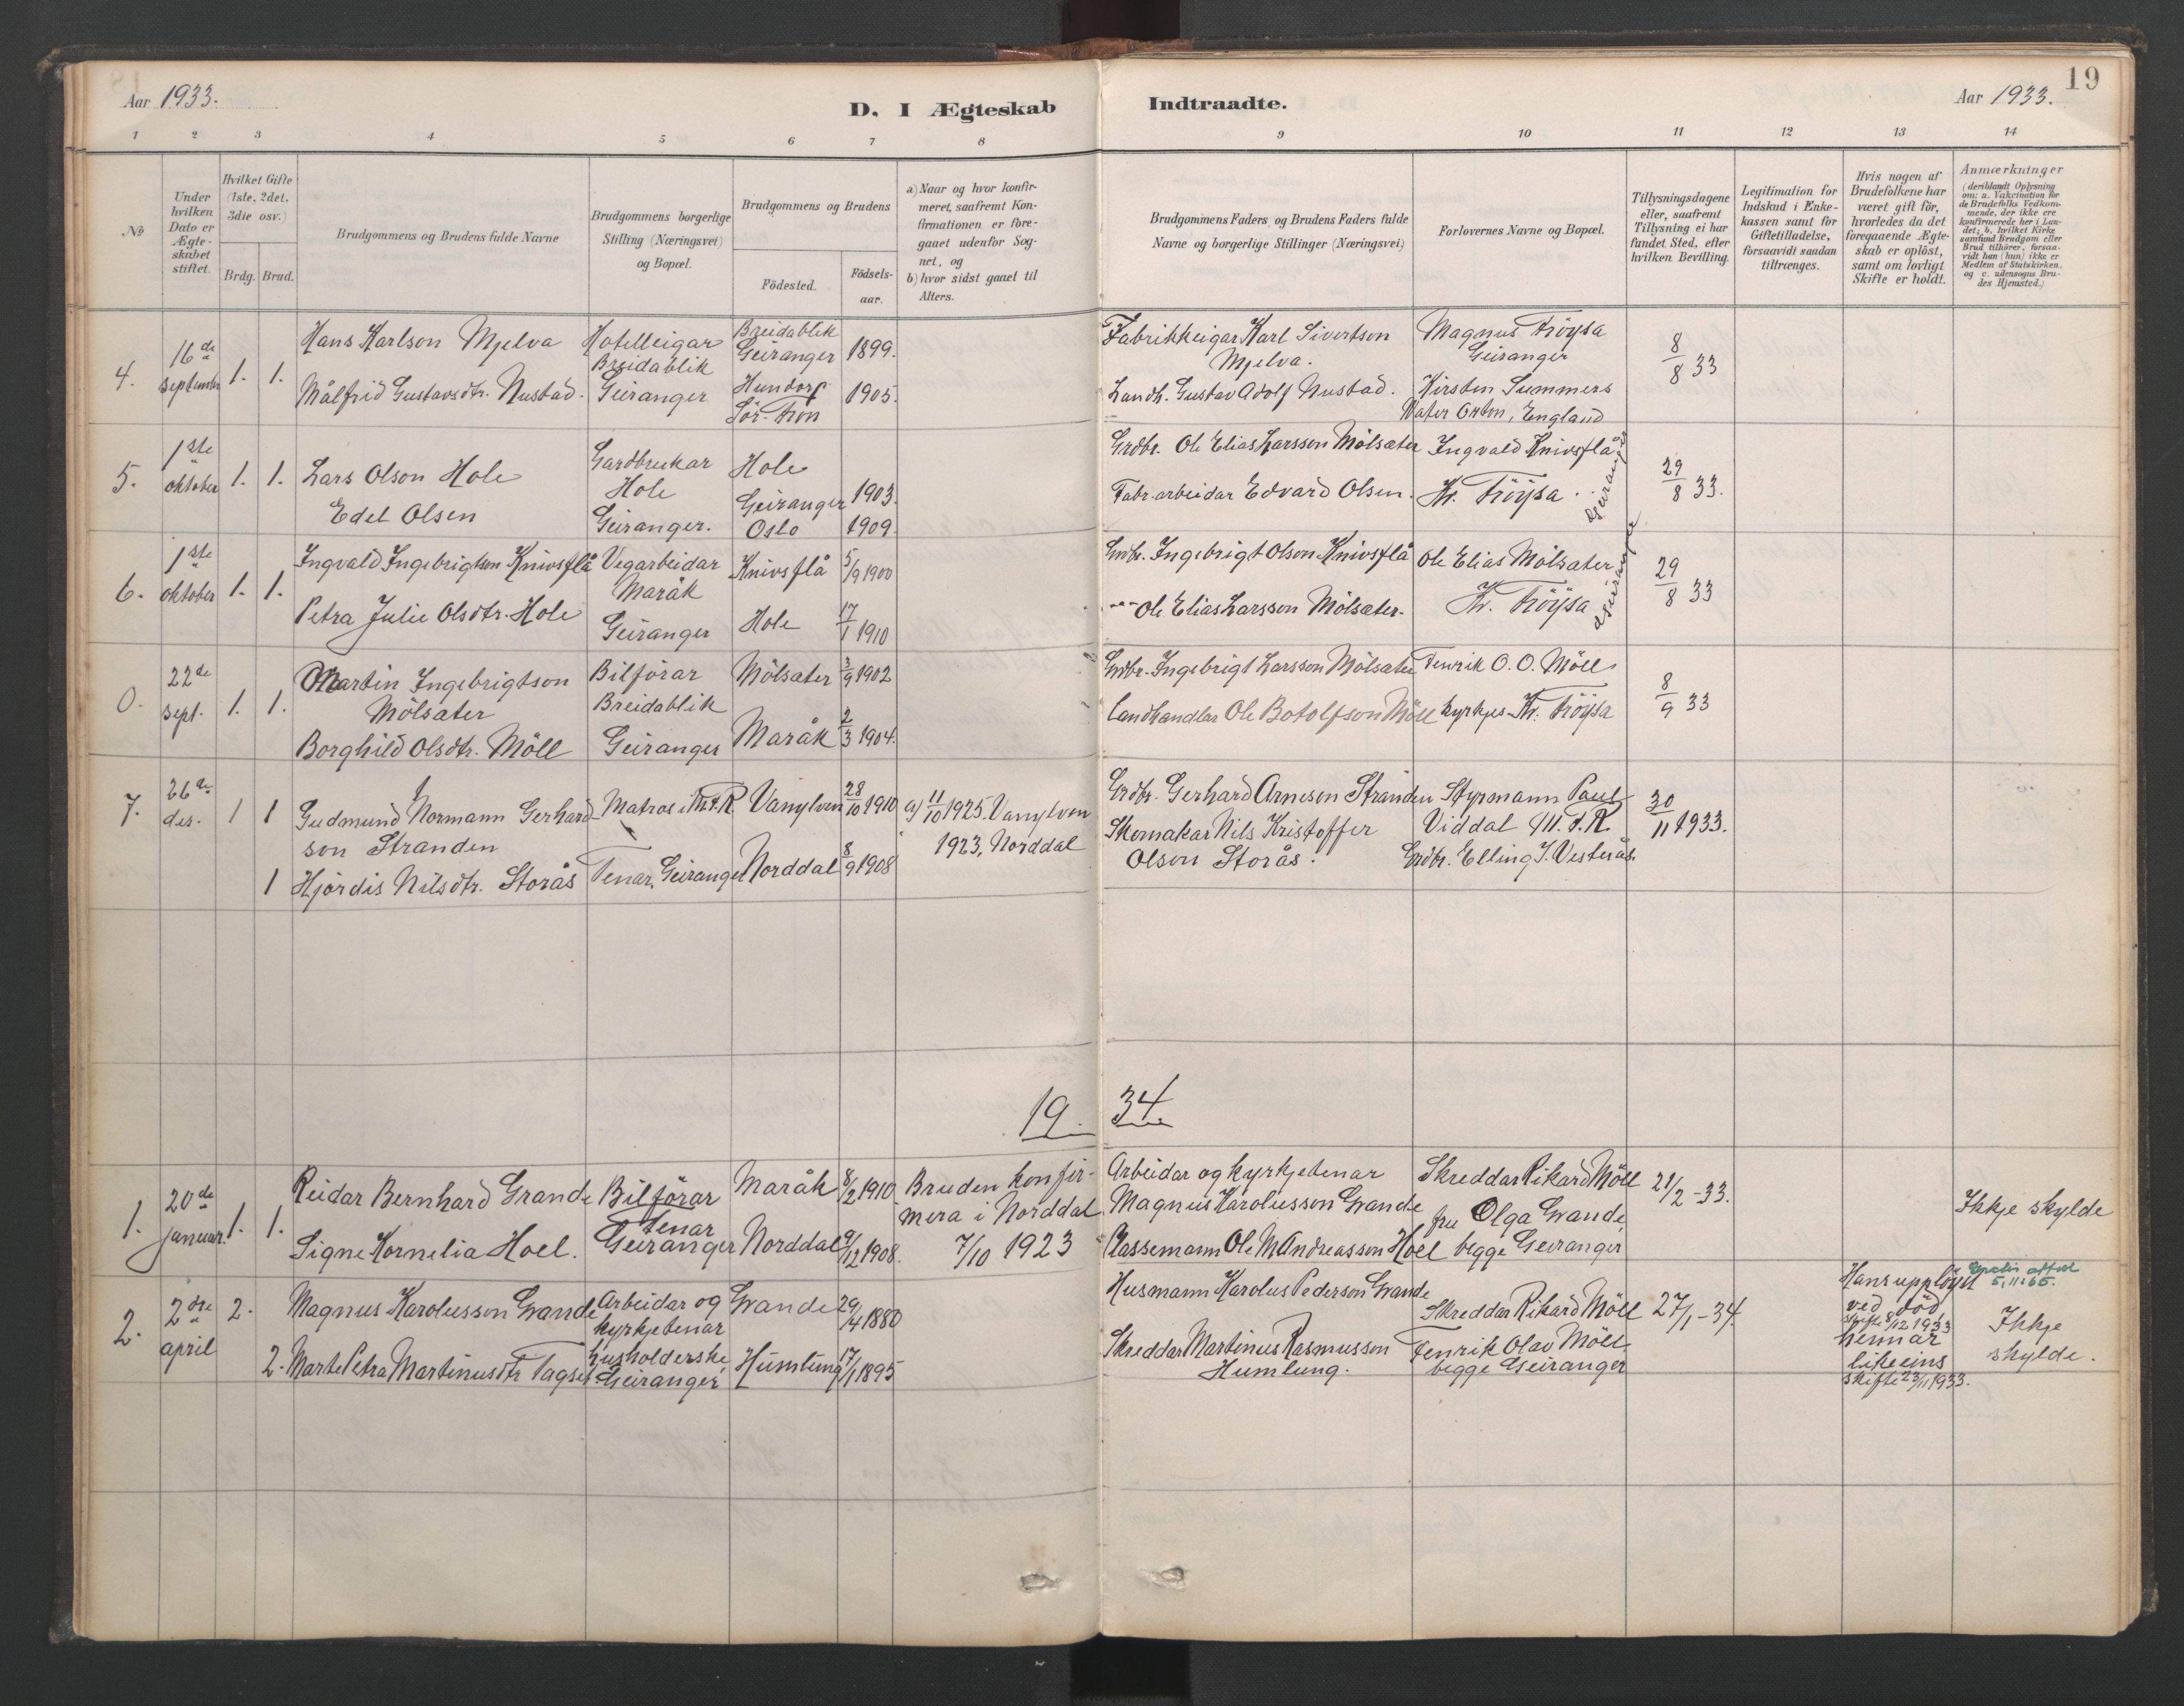 Aar 1933.
D. I Ægteskab
Indtraadte.
Aar 1933.
19
1 2 3 4 5 6 7 8 9 10 11 12 13 14
No
Under
hvilken
Dato er
Ægte-
skabet
stiftet.
Hvilket Gifte
(1ste, 2det,
3die osv.)
Brdg. Brud.
Brudgommens og Brudens fulde Navne
Brudgommens borgerlige
Stilling (Næringsvei)
og Bopæl.
Brudgommens og Brudens
Födested.
Födsels-
aar.
a) Naar og hvor konfir-
meret, saafremt Kon-
firmationen er fore-
gaaet udenfor Sog-
net, og
b) hvor sidst gaaet til
Alters.
Brudgommens Faders og Brudens Faders fulde
Navne og borgerlige Stillinger (Næringsvei)
Forlovernes Navne og Bopæl.
Tillysningsdagene
eller, saafremt
Tillysning ei har
fundet Sted, efter
hvilken Bevilling.
Legitimation for
Indskud i Enke-
kassen samt for
Giftetilladelse,
forsaavidt saadan
tiltrænges.
Hvis nogen af
Brudefolkene har
været gift för,
hvorledes da det
foregaaende Ægte-
skab er oplöst,
samt om lovligt
Skifte er holdt.
Anmærkninger
(deriblandt Oplysning
om: a. Vakcination for
de Brudefolks Vedkom-
mende, der ikke ere
konfirmerede her i Lan-
det; b. hvilket Kirke
samfund Brudgom eller
Brud tilhörer, forsaa-
vidt han (hun) ikke er
Medlem af Statskirken,
og c. udensogns Bru-
des Hjemsted.)
4.
16de
september
1. 1.
Hans Karlson Mjelva
Målfrid Gustavsdtr. Nustad.
Hotelleigar
Breidablik
Geiranger
Breidablik
Geiranger 1899.
Hundorp
Sör-Fron 1905.
Fabrikkeigar Karl Sivertson
Mjelva.
Landh. Gustav Adolf Nustad.
Magnus Fröysa
Geiranger
Kirsten Summers
Water Orton, England
8/8 33
5.
1ste
oktober
1. 1.
Lars Olson Hole
Edel Olsen
Gardbrukar
Hole
Geiranger.
Hole
Geiranger 1903.
Oslo 1909.
Grdbr. Ole Elias Larsson Mölsæter
Fabr.arbeidar Edvard Olsen.
Ingvald Knivsflå
Kr. Fröysa
Geiranger
29/8 33.
6.
1ste
oktober
1. 1.
Ingvald Ingebrigtson Knivsflå
Petra Julie Olsdtr. Hole
Vegarbeidar
Maråk
Geiranger
Knivsflå 5/9 1900
Hole 17/1 1910
Grdbr. Ingebrigt Olson Knivsflå
-"- Ole Elias Larsson Mölsæter.
Ole Elias Mölsæter
Kr. Fröysa
Geiranger
29/8 33
0.
22de
sept.
1. 1.
Martin Ingebrigtson
Mölsæter
Borghild Olsdtr. Möll
Bilförar
Breidablik
Geiranger
Mölsæter 3/9 1902
Maråk 2/3 1904.
Grdbr. Ingebrigt Larsson Mölsæter
Landhandlar Ole Botolfson Möll
Fenrik O. O. Möll
kyrkjes. Kr. Fröysa
8/9 33
7.
26de
des.
1 1
1
Gudmund Normann Gerhard-
son Stranden
Hjördis Nilsdtr. Storås
Matros i M.F.R.
Tenar, Geiranger
Vanylven 28/10 1910
Norddal 8/9 1908
a) 11/10 1925. Vanylven
1923, Norddal
Grdbr. Gerhard Arneson Stranden
Skomakar Nils Kristoffer
Olson Storås.
Styrmann Paul
Viddal M.F.R.
Grdbr. Elling J. Vesterås.
30/11 1933.
19. 34.
1.
20de
januar.
1. 1.
Reidar Bernhard Grande
Signe Kornelia Hoel.
Bilförar
Tenar
Geiranger
Maråk 8/2 1910
Norddal 9/12 1908.
Bruden konfir-
mera i Norddal
7/10 1923
Arbeidar og kyrkjetenar
Magnus Karolusson Grande
Plassemann Ole M Andreasson Hoel
Skreddar Rikard Möll
fru Olga Grande,
begge Geiranger
21/2-33.
Ikkje skylde
2.
2dre
april
2.
2.
Magnus Karolusson Grande
Marte Petra Martinusdtr Fagset
Arbeidar og
kyrkjetenar
husholderske
Geiranger
Grande 29/4 1880
Humlung 17/1 1895
Husmann Karolus Pederson Grande
Skreddar Martinus Rasmusson
Humlung.
Skreddar Rikard Möll
Fenrik Olav Möll,
begge Geiranger
27/1-34.
Hans upplöyst
ved död,
skifte 8/12 1933
hennar
likeeins
skifte 23/11 1933.
5.11.65.
Ikkje
skylde.